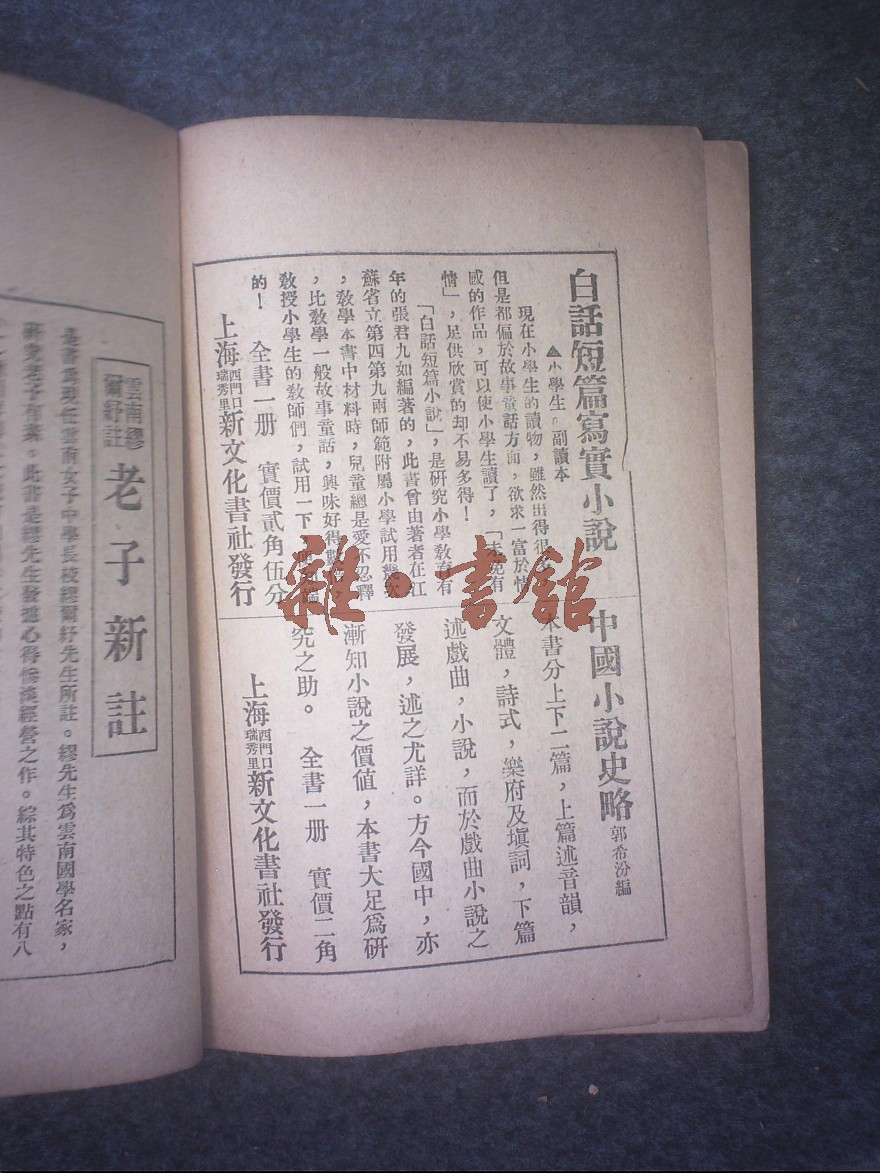 白話短篇寫實小說
▲小學生。副讀本
現在小學生的讀物，雖然出得很多
但是都偏於故事童話方面，欲求一富於情
感的作品，可以使小學生讀了，「未免有
情」，足供欣賞的却不易多得！
「白話短篇小說」，是研究小學教育有
年的張君九如編著的，此書曾由著者在江
蘇省立第四第九兩師範附屬小學試用幾次
，教學本書中材料時，兒童總是愛不忍釋
，比教學一般故事童話，興味好得數倍，
教授小學生的教師們，試用一下
的！　全書一册　實價貳角伍分
上海西門口瑞秀里新文化書社發行
中國小說史略　郭希汾編
本書分上下二篇，上篇述音韻，
文體，詩式，樂府及塡詞，下篇
述戲曲，小說，而於戲曲小說之
發展，述之尤詳。方今國中，亦
漸知小說之價値，本書大足爲研
究之助。　全書一册　實價二角
上海西門口瑞秀里新文化書社發行
雜·書館
雲南繆爾紓註　老子新註
是書爲現任雲南女子中學長校繆爾紓先生所註。繆先生爲雲南國學名家，
研究老子有素。此書是繆先生發攄心得慘淡經營之作。綜其特色之點有八